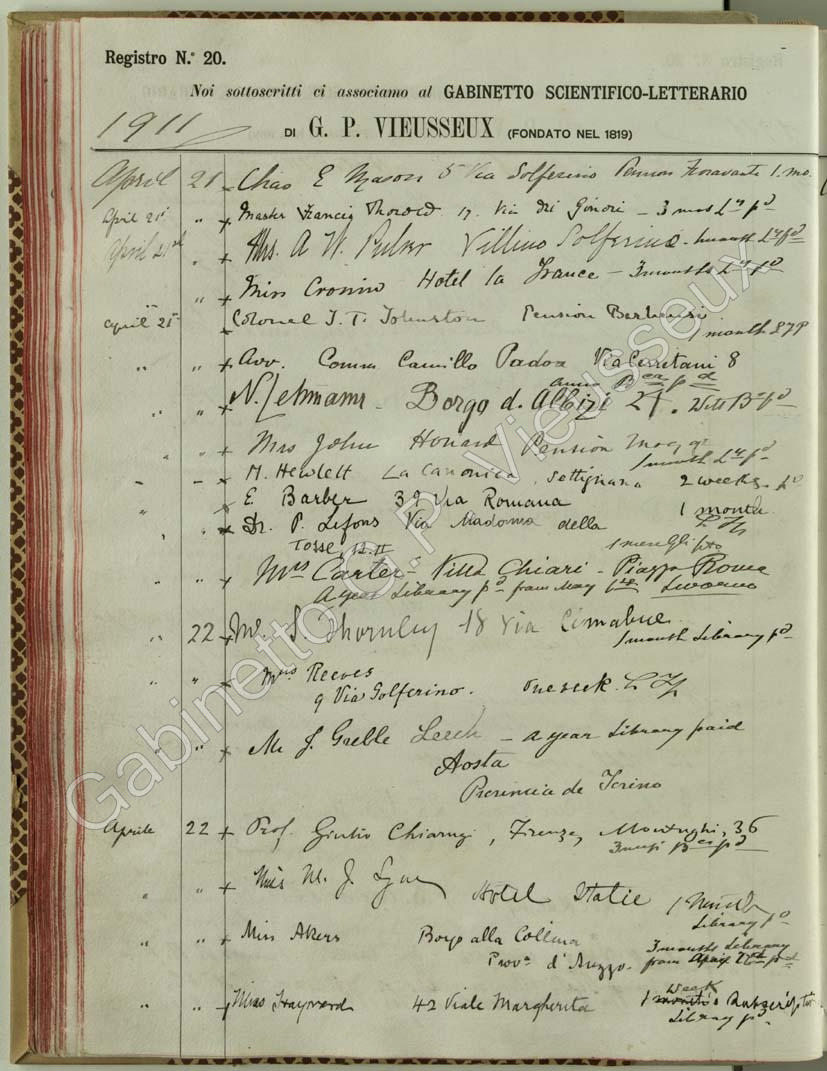 Registro N.º 20.
Noi sottoscritti ci associamo al GABINETTO SCIENTIFICO-LETTERARIO
1911
DI G. P. VIEUSSEUX (FONDATO NEL 1819)
April 21 Chas E Mason 5 Via Solferino Pension Fioravanti 1. mo.
April 21st " Master Francis Thorold 17. Via dei Ginori - 3 mos Ly pd
April 21st " Mrs. A W. Villino Solferino - 1 month Ly pd
" Miss Hotel la France - 3 months Ly pd
April 21st Colonel J. T. Johnston Pension Barbensi
1 month
" " Avv. Comm Camillo Padoa Via Cerretani 8
anno pd
" " N. Lehmann - Borgo d. Albizi 21.
" Mrs John Howard Pension
1 month Ly pd
" - M. Hewlett La Canonica, Settignano 2 weeks. pd
" " E Barber 39 Via Romana 1 month
" " Dr. P. Lefons Via Madonna della
Tosse, 12.II 1 mese
" " Mrs Carter - Villa Chiari - Piazza Roma
A year Library pd from May Livorno
" 22 Mr. S. Thornley 18 Via Cimabue.
1 month Library pd
" " Mrs Reeves
9 Via Solferino.
" " Mr J. Leech - a year Library paid
Aosta
Provincia de Torino
Aprile 22 Prof. Giulio Chiarugi, Firenze, Montughi, 36
3 mesi pd
" " Miss M. J. Hotel Italie 1 Month
Library pd
" " Miss Akers Borgo alla Collina 3 months Library
Prova d'Arezzo. from April pd
" " Miss Hayward 42 Viale Margherita 1 week's
Library pd.
Gabinetto G.P. Vieusseux